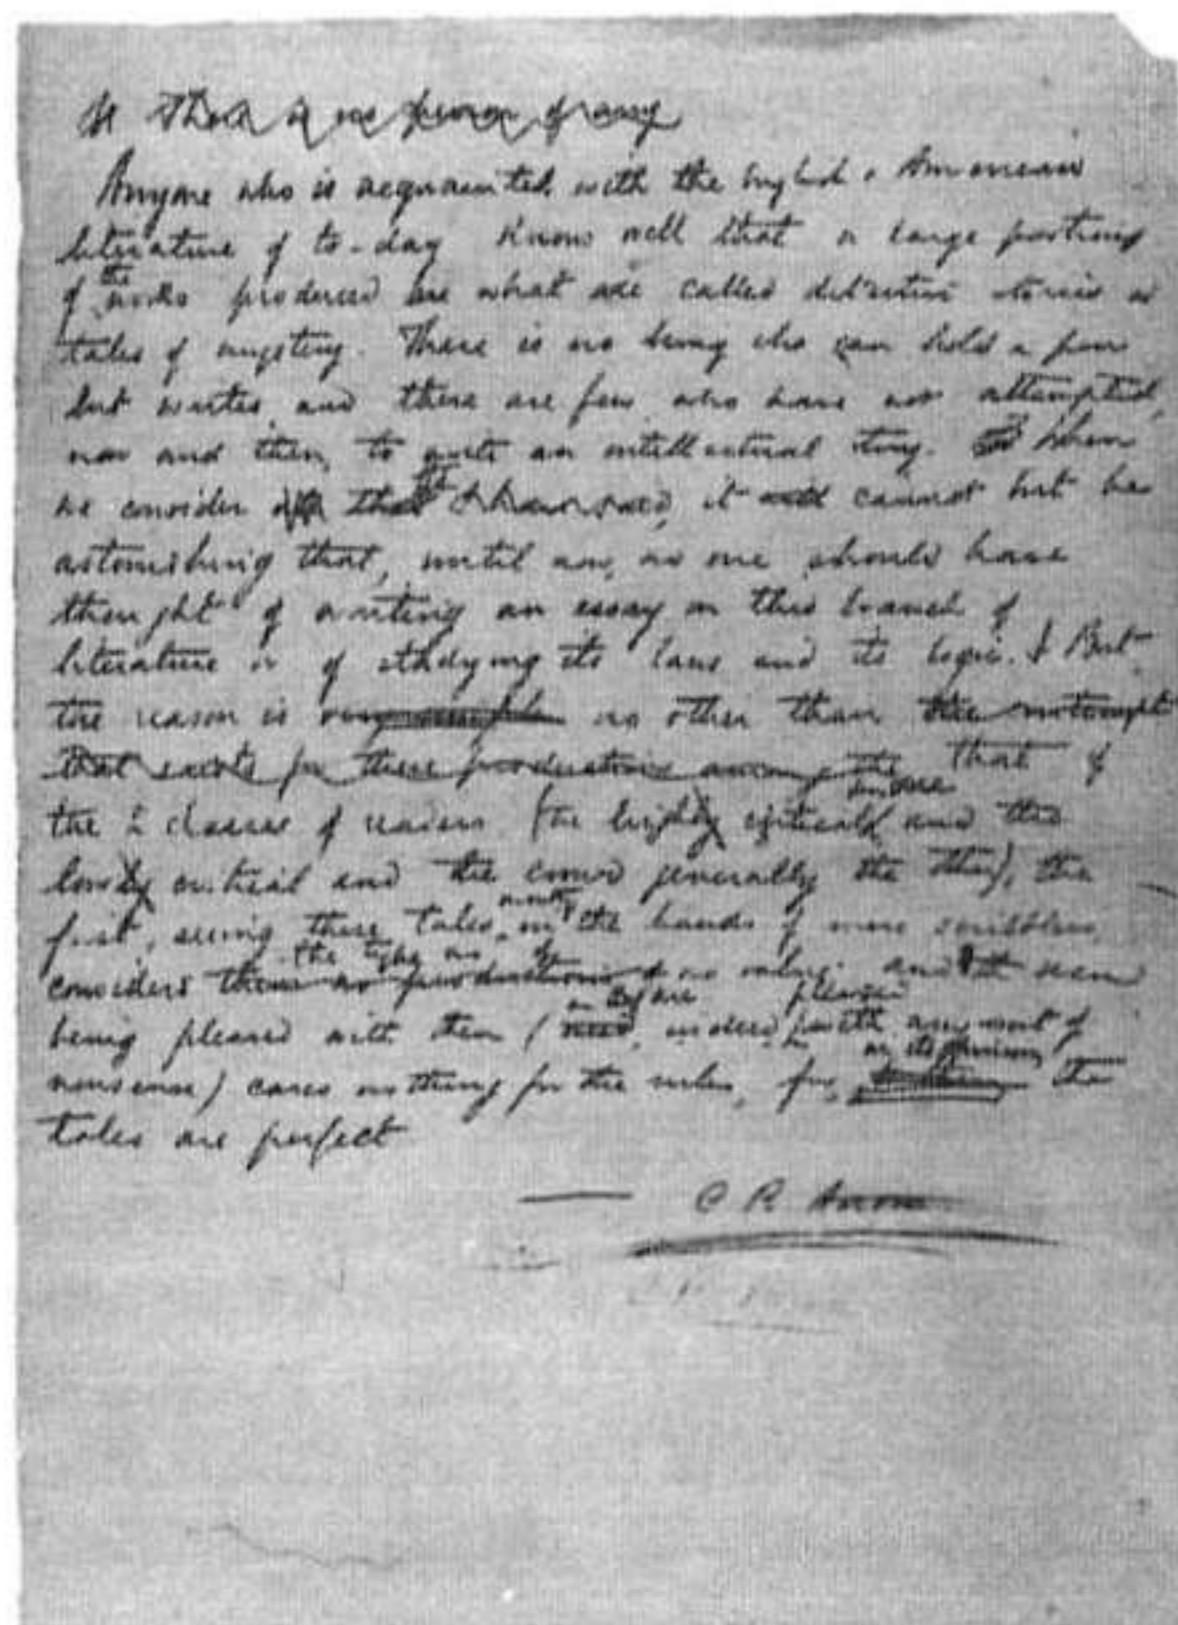 There is no person of any
Anyone who is acquainted with the English & American
literature of to-day knows well that a large portion
of the works produced are what are called detective stories or
tales of mystery. There is no being who can hold a pen
but writes and there are few who have not attempted,
now and then, to write an intellectual story. When
we consider that, it cannot but be
astonishing that, until now, no one should have
thought of writing an essay on this branch of
literature or of studying its laws and its logic. But
the reason is very simple no other than the contempt
that exists for these productions among the that of
the 2 classes of readers (the highly critical and the
lowly critical and the generally the other), the
first, seeing these tales mostly in the hands of mere scribblers,
considers them as productions the type as of no value; and the
being pleased with them (indeed, pleased with any sort of
nonsense) cares nothing for the rules, for, in its opinion the
tales are perfect
C R Anon